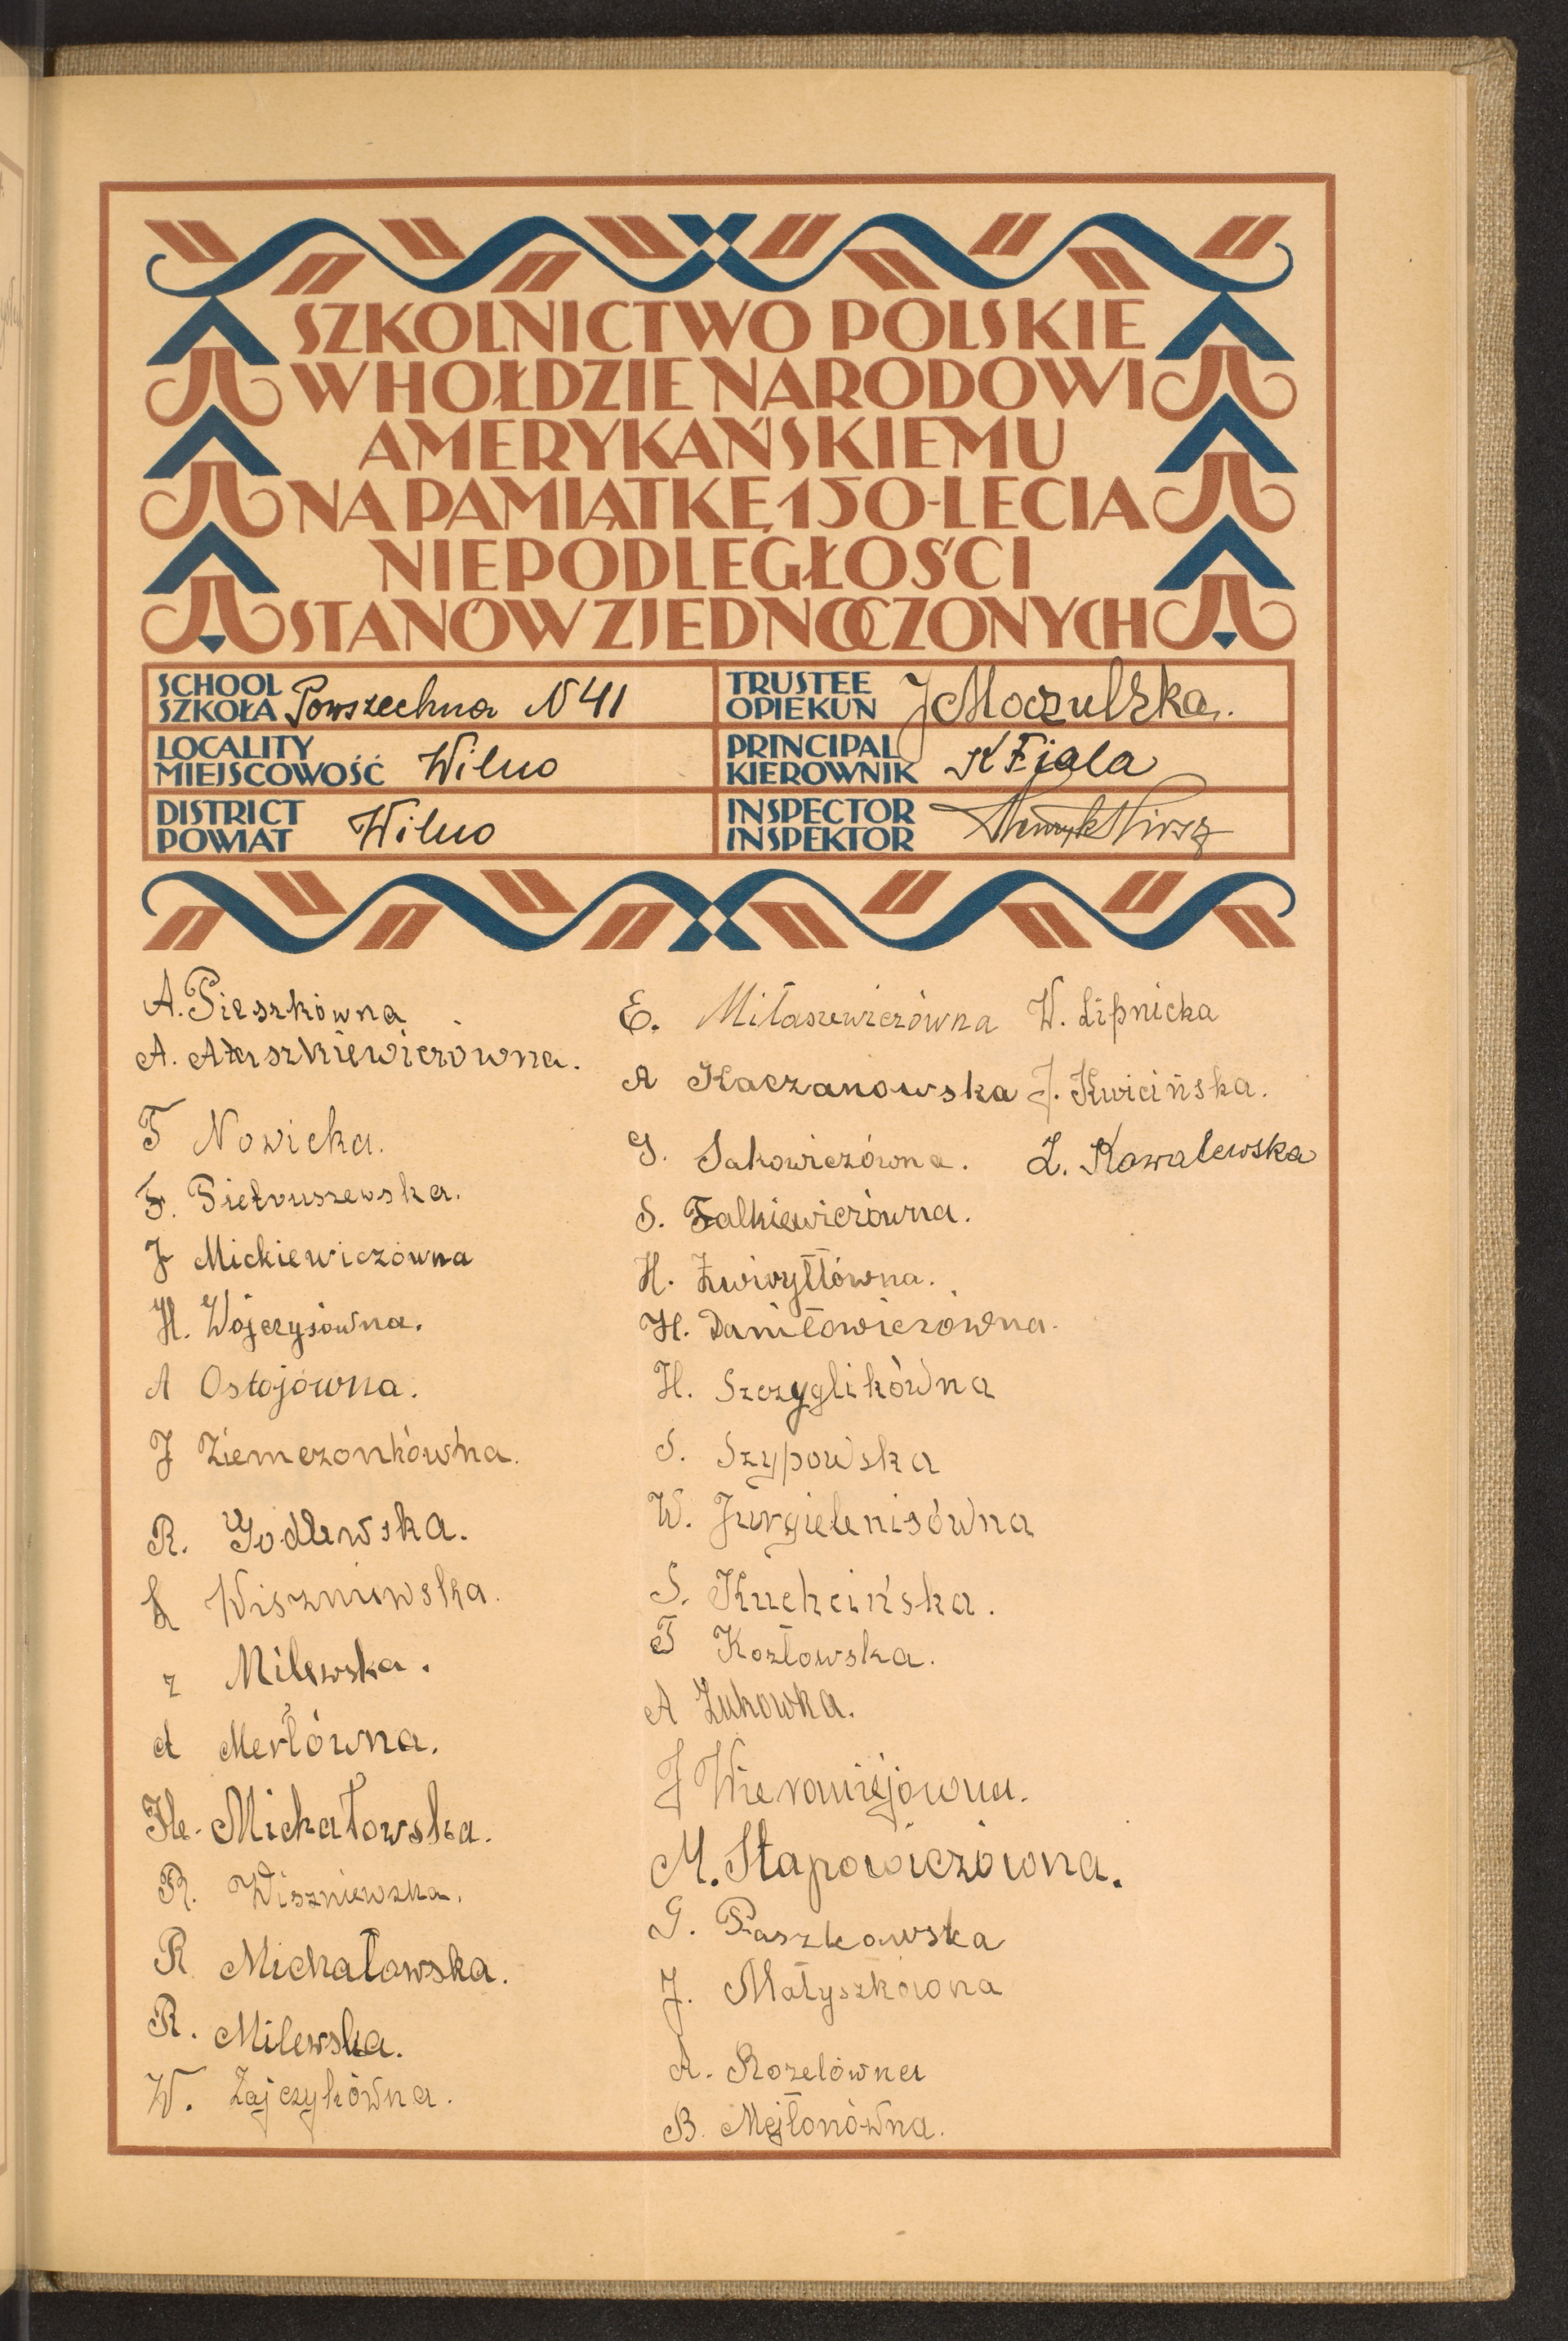 SZKOLNICTWO POLSKIE
W HOŁDZIE NARODOWI
AMERYKAŃSKIEMU
NA PAMIĄTKĘ 150-LECIA
NIEPODLEGŁOŚCI
STANÓW ZJEDNOCZONYCH
SCHOOL
SZKOŁA Powszechna N 41
LOCALITY
MIEJSCOWOŚĆ Wilno
DISTRICT
POWIAT Wilno
TRUSTEE
OPIEKUN J Moczulska.
PRINCIPAL
KIEROWNIK K Fiala
INSPECTOR
INSPEKTOR Henryk
A. Pieszkówna
A.
T Nowicka.
F. Pietruszewska.
J Mickiewiczówna
H. Wójczysówna.
A Ostojówna.
J Ziemczonkówna.
R. Godlewska.
Wiszniewska.
z Milewska.
A Merlówna.
He. Michałowska.
R. Wiszniewska.
R Michałowska.
R. Milewska.
W. Zajczykówna.
E. Miłaszewiczówna
A Kaczanowska
G. Sakowiczówna.
S. Falkiewiczówna.
H. Żwiryłłówna.
H. Daniłowiczówna.
H. Szczyglikówna
S. Szypowska
W. Jurgielenisówna
S. Kuchcińska.
T Kozłowska.
A Żukowka.
J Wieraniejówna.
M. Stapowiczówna.
G. Paszkowska
J. Małyszkówna
A. Rozelówna
B. Mejłonówna.
W. Lipnicka
J. Kwicińska.
L. Kowalewska